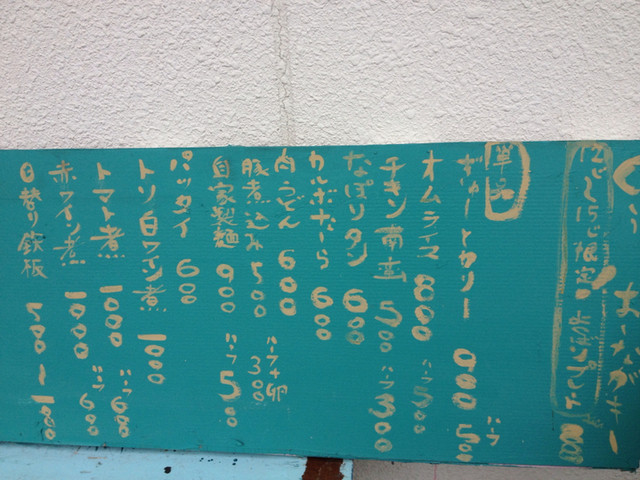 単品
ぎゅーとカリー 900 ハーフ 500
オムライス 800 ハーフ500
チキン南蛮 500 ハーフ300
なぽりタン 600
カルボなーら 600
肉うどん 600
豚煮込み 500 ハーフ+卵 300
自家製麺 900 ハーフ 500
パッタイ 600
トリ白ワイン煮 1000
トマト煮 1000 ハーフ 600
赤ワイン煮 1000 ハーフ 600
日替り鉄板 500〜1000